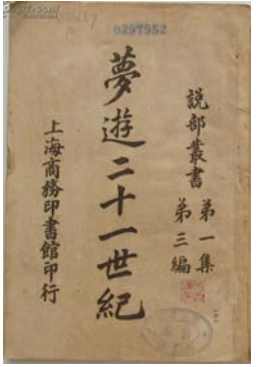 0297952
説部叢書
第一集
第三編
夢遊二十一世紀
上海商務印書館印行